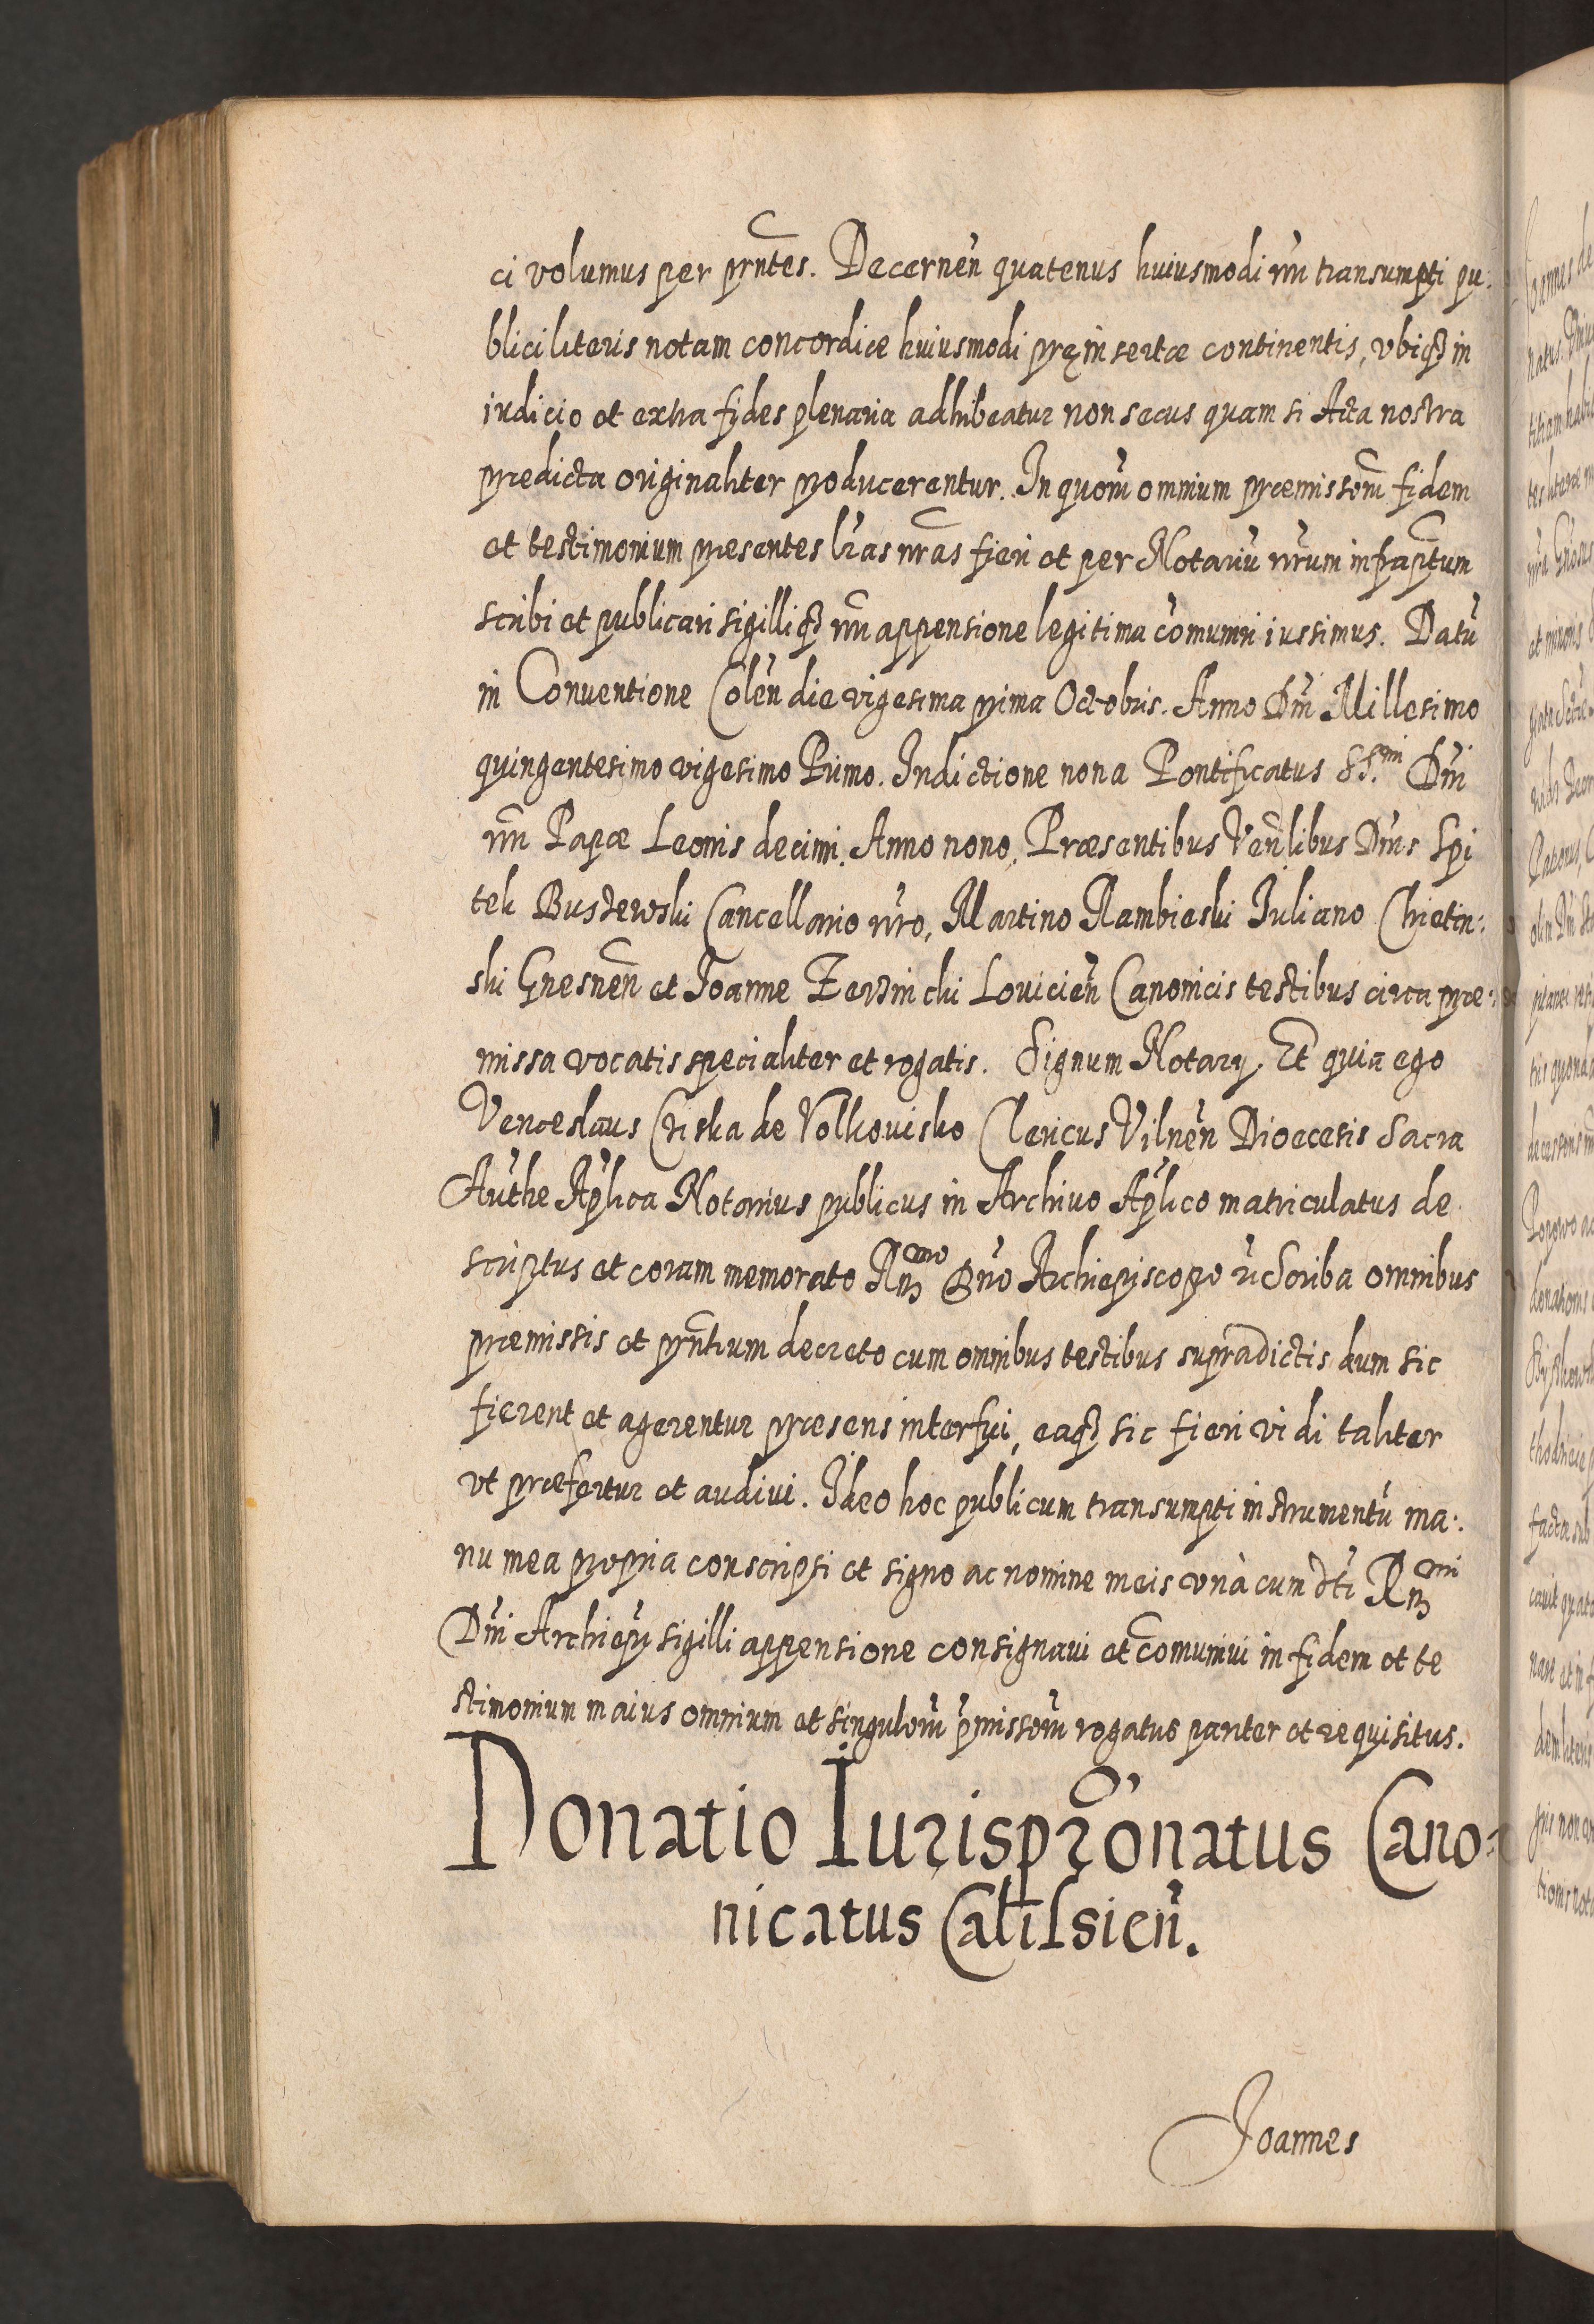 ci volumus per pñtes. Decernen̄ quatenus huiusmodi nr̄i transumpti pu:
blici literis notam concordiæ huiusmodi pręinsertæ continentis, vbiqȝ in
iudicio et extra fides plenaria adhibeatur non secus quam si Acta nostra
prædicta originaliter producerentur. In quor̄ū omnium præmissor̄ū fidem
et testimonium præsentes lr̄as nr̄as fieri et per Notariū nr̄um infraptum
scribi et publicari sigilliqȝ nr̄i appensione legitima cōmuniri iussimus. Datū
in Conuentione Colen̄ die vigesima prima Octobris. Anno Dn̄i Millesimo
quingentesimo vigesimo Primo. Indictione nona Pontificatus SS.mi Dn̄i
nr̄i Papæ Leonis decimi. Anno nono. Præsentibus Ven̄libus Dn̄is Spi
tek Buszewski Cancellario nr̄o, Martino Rambieski Iuliano Chietin:
ski Gnesnen̄ et Joanne Zerzinchi Louicien̄ Canonicis testibus circa præ:
missa vocatis specialiter et rogatis. Signum Notary. Et quia ego
Venceslaus Criska de Volkouisko Clericus Vilnen̄ Diœcesis Sacra
Aut̄he Ap̄lica Notarius publicus in Archiuo Ap̄lico matriculatus de
scriptus et coram memorato Rn̄mo Dn̄o Archiepiscopo r̄i Scriba omnibus
præmissis et pn̄tium decreto cum omnibus testibus supradictis dum sic
fierent et agerentur præsens interfui, eaqȝ sic fieri vidi taliter
vt præfertur et audiui. Ideo hoc publicum transumpti instrumentū ma:
nu mea propria conscripsi et signo ac nomine meis vnà cum dt̄i Rn̄mi
Dn̄i Archiepī sigilli appensione consignaui et cōmuniui in fidem et te
stimonium maius omnium et singulor̄ū p̄missor̄ū rogatus pariter et requisitus.
Donatio Iurispr̄onatus Cano:
nicatus Calilsien̄.
Joannes